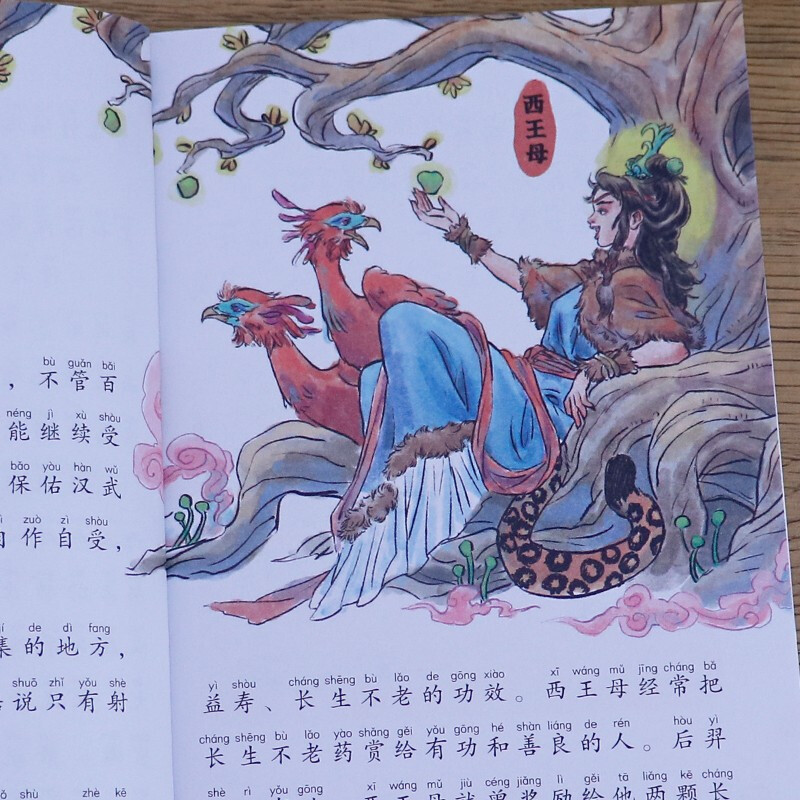 bù guǎn bǎi
，不管百
néng jì xù shòu
能继续受
bǎo yòu hàn wǔ
保佑汉武
zuò zì shòu
作自受，
de dì fang
集的地方，
shuō zhǐ yǒu shè
说只有射
shù zhè kē
西王母
yì shòu cháng shēng bù lǎo de gōng xiào xī wáng mǔ jīng cháng bǎ
益寿、长生不老的功效。西王母经常把
cháng shēng bù lǎo yào shǎng gěi yǒu gōng hé shàn liáng de rén hòu yì
长生不老药赏给有功和善良的人。后羿
shè rì yǒu gōng xī wáng mǔ jiù céng jiǎng lì gěi tā liǎng kē cháng
西王母就曾奖励给他两颗长